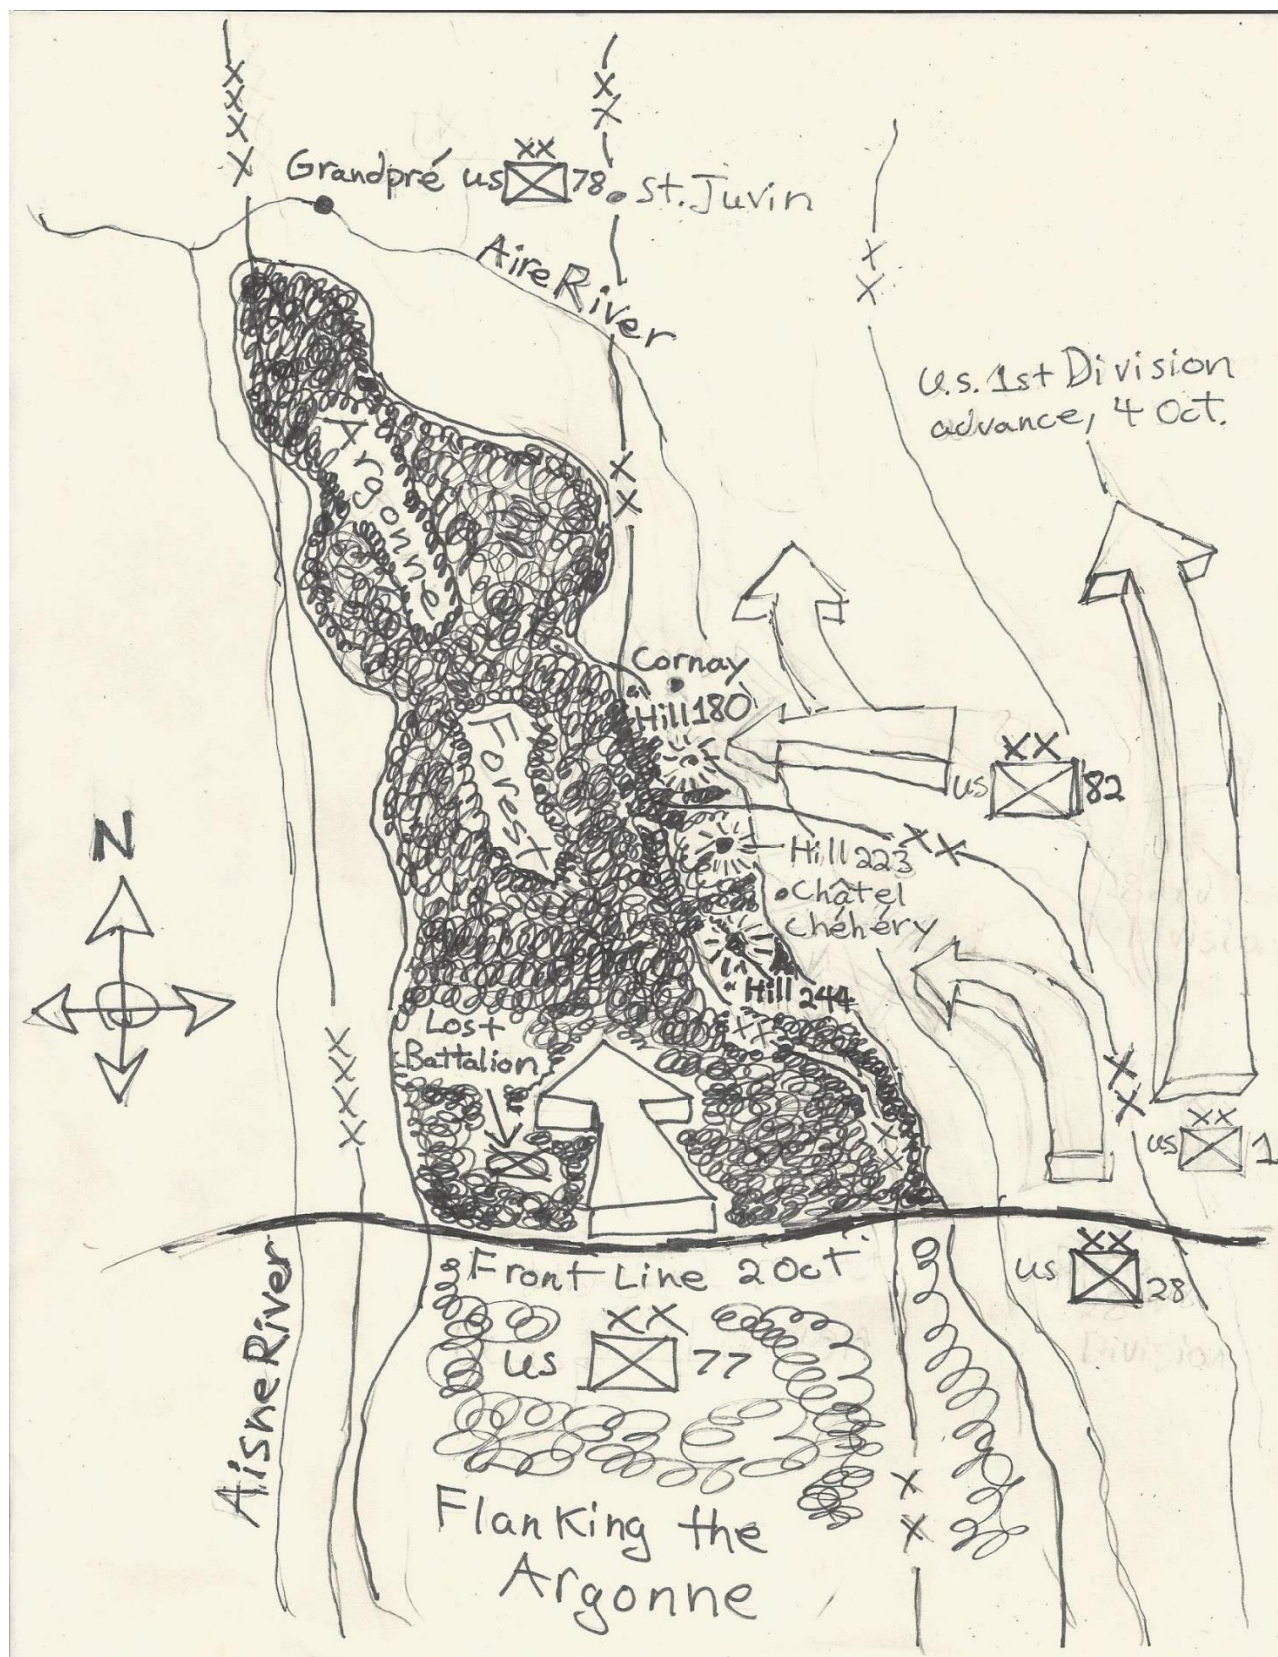 XXXX
XX
XX
Grandpré
US
78
St. Juvin
Aire River
XX
U.S. 1st Division
advance, 4 Oct.
Argonne
XX
Cornay
Hill 180
Forest
XX
US
82
N
Hill 223
XX
Châtel
Chéhéry
Hill 244
Lost
Battalion
XX
XXXX
XX
XX
US
1
XX
Front Line 2 Oct.
XX
US
28
Aisne River
XX
US
77
XX
Flanking the
Argonne